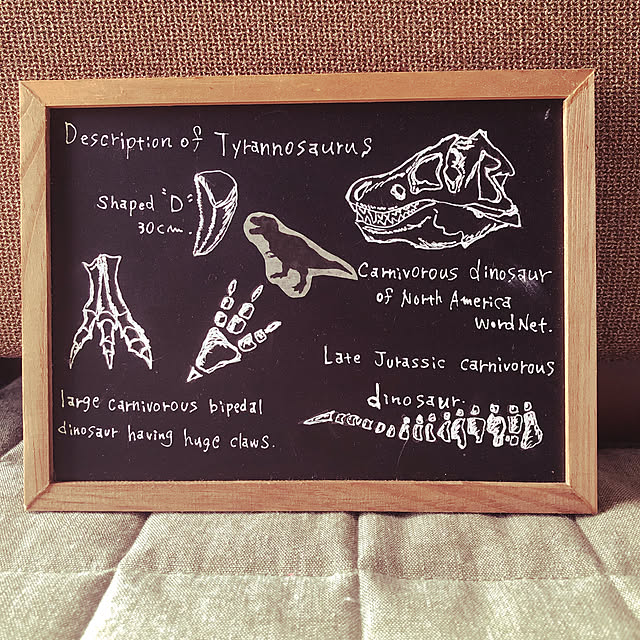 Description of Tyrannosaurus
Shaped "D"
30cm.
Carnivorous dinosaur
of North America
WordNet.
Late Jurassic carnivorous
dinosaur.
large carnivorous bipedal
dinosaur having huge claws.